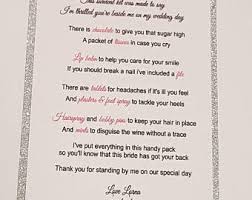 This wedding kit was made to say
I'm thrilled you're beside me on my wedding day
There is chocolate to give you that sugar high
A packet of tissues in case you cry
Lip balm to help you care for your smile
If you should break a nail i've included a file
There are tablets for headaches if it's ill you feel
And plasters & foot spray to tackle your heels
Hairspray and bobby pins to keep your hair in place
And mints to disguise the wine without a trace
I've put everything in this handy pack
so you know that this bride has got your back
Thank you for standing by me on our special day
Love Lorna